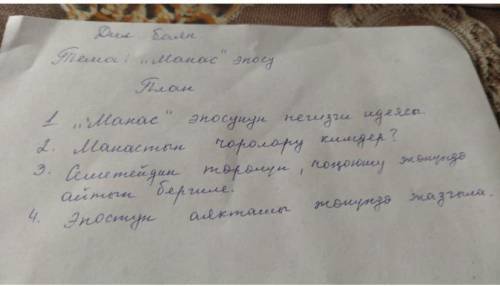 Дил баян
Тема: "Манас" эпосу
План
1. "Манас" эпосунун негизги идеясы
2. Манастын чоролору кимдер?
3. Семетейдин төрөлүп, чоңоюшу жөнүндө
айтып бергиле.
4. Эпостун аякташы жөнүндө жазгыла.